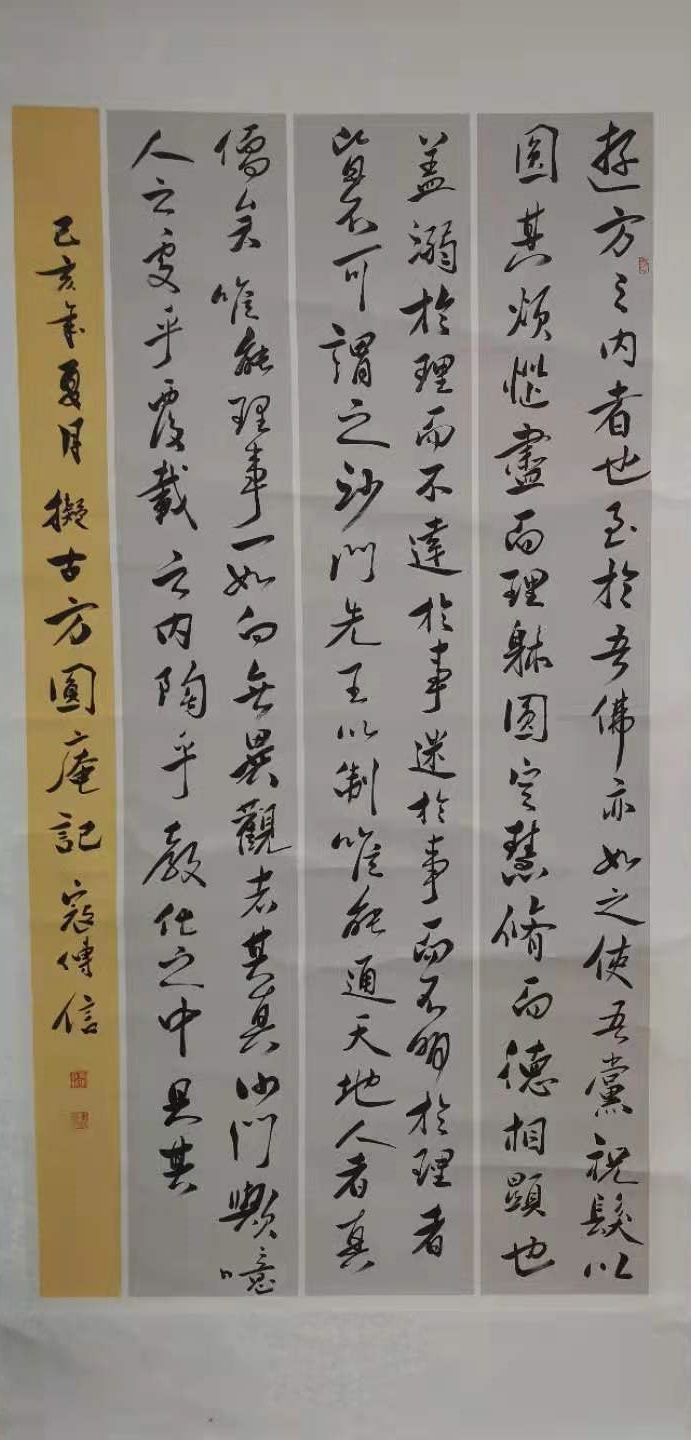 遊方之内者也至於吾佛亦如之使吾黨祝髮以
圓其煩惱盡而理躰圓定慧脩而德相顯也
蓋溺於理而不達於事迷於事而不明於理者
皆不可謂之沙門先王以制唯能通天地人者真
儒矣唯能理事一如向無異觀者其真沙門歟噫
人之處乎覆載之内陶乎教化之中具其
己亥年夏月擬古方圓庵記寇傅信